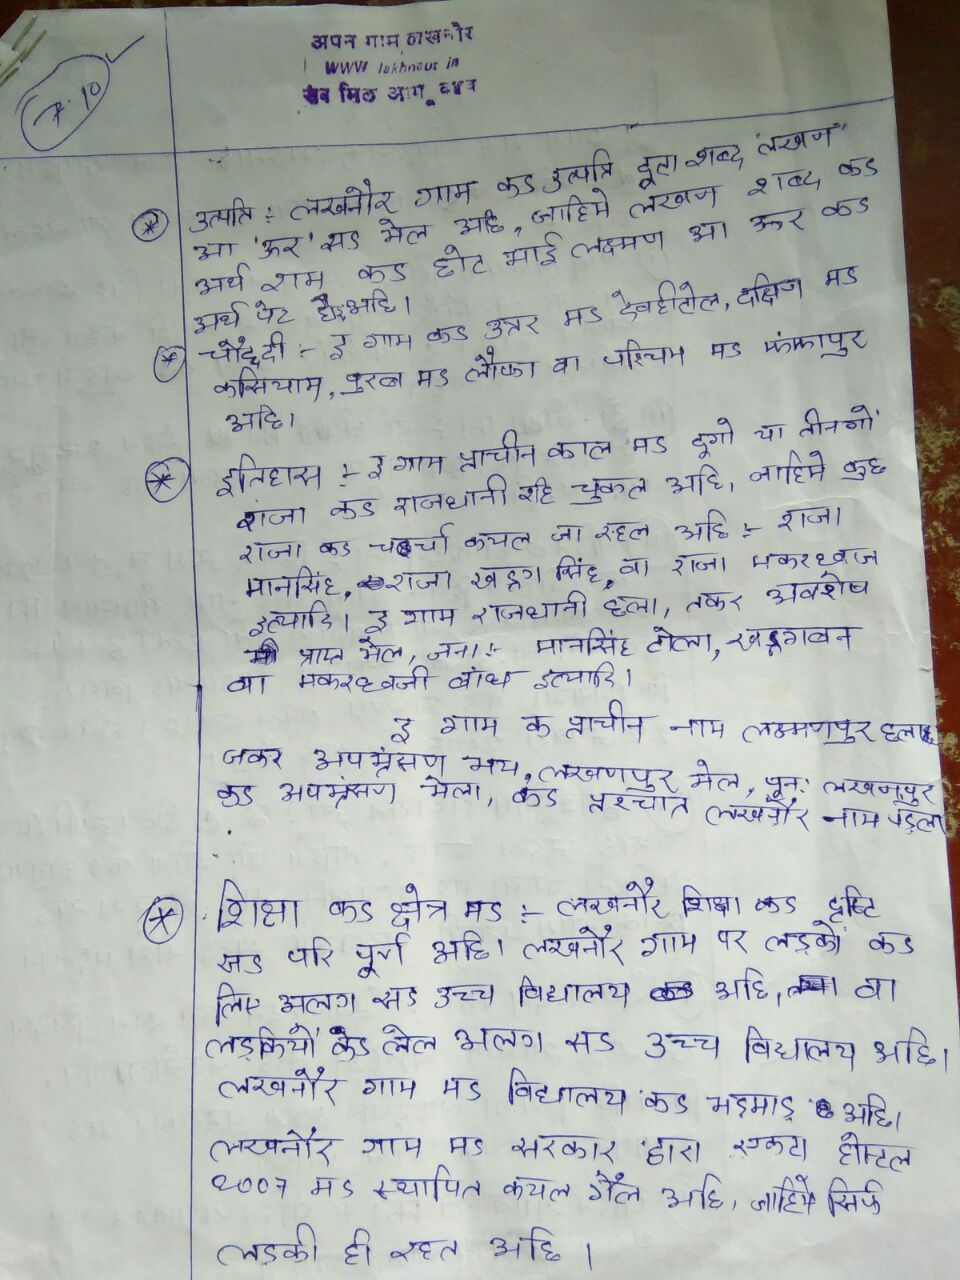 P.10
अपन गाम लखनौर
WWW lakhnaur in
सब मिल आगू बढब
उत्पति :- लखनौर गाम कऽ उत्पति दूटा शब्द "लखन"
आ 'ऊर' सऽ भेल अछि, जाहिमे लखन शब्द कऽ
अर्थ राम कऽ छोट भाई लक्ष्मण आ ऊर कऽ
अर्थ पेट अछि।
चौद्दी :- इ गाम कऽ उत्तर मऽ देवहीटोल, दक्षिण मऽ
कसियाम, पुरब मऽ लौफा वा पश्चिम मऽ
अछि।
इतिहास :- इ गाम प्राचीन काल मऽ दूगो या तीनगो
राजा कऽ राजधानी रहि चुकल अछि, जाहिमे कुछ
राजा कऽ चर्चा कयल जा रहल अछि :- राजा
मानसिंह, राजा खड्ग सिंह, वा राजा मकरध्वज
इत्यादि। इ गाम राजधानी छला, तकर अवशेष
प्राप्त भेल, जेना :- मानसिंह टोला, खड्गबन
वा मकरध्वजी बांध इत्यादि।
इ गाम क प्राचीन नाम लक्ष्मणपुर छल
जकर अपभ्रंसण भय, लखणपुर भेल, पून: लखनपुर
कऽ अपभ्रंसण भेला, कऽ प्रश्चात लखनौर नाम पड़ला
शिक्षा कऽ क्षेत्र मऽ :- लखनौर शिक्षा कऽ दृष्टि
सऽ परि पूर्ण अछि। लखनौर गाम पर लड़को कऽ
लिए अलग सऽ उच्च विद्यालय अछि, वा
लड़कियों कऽ लेल अलग सऽ उच्च विद्यालय अछि।
लखनौर गाम मऽ विद्यालय कऽ भड़माड़ अछि।
लखनौर गाम मऽ सरकार द्वारा एकटा होस्टल
2007 मऽ स्थापित कयल गैल अछि, जाहिमे सिर्फ
लड़की ही रहत अछि।